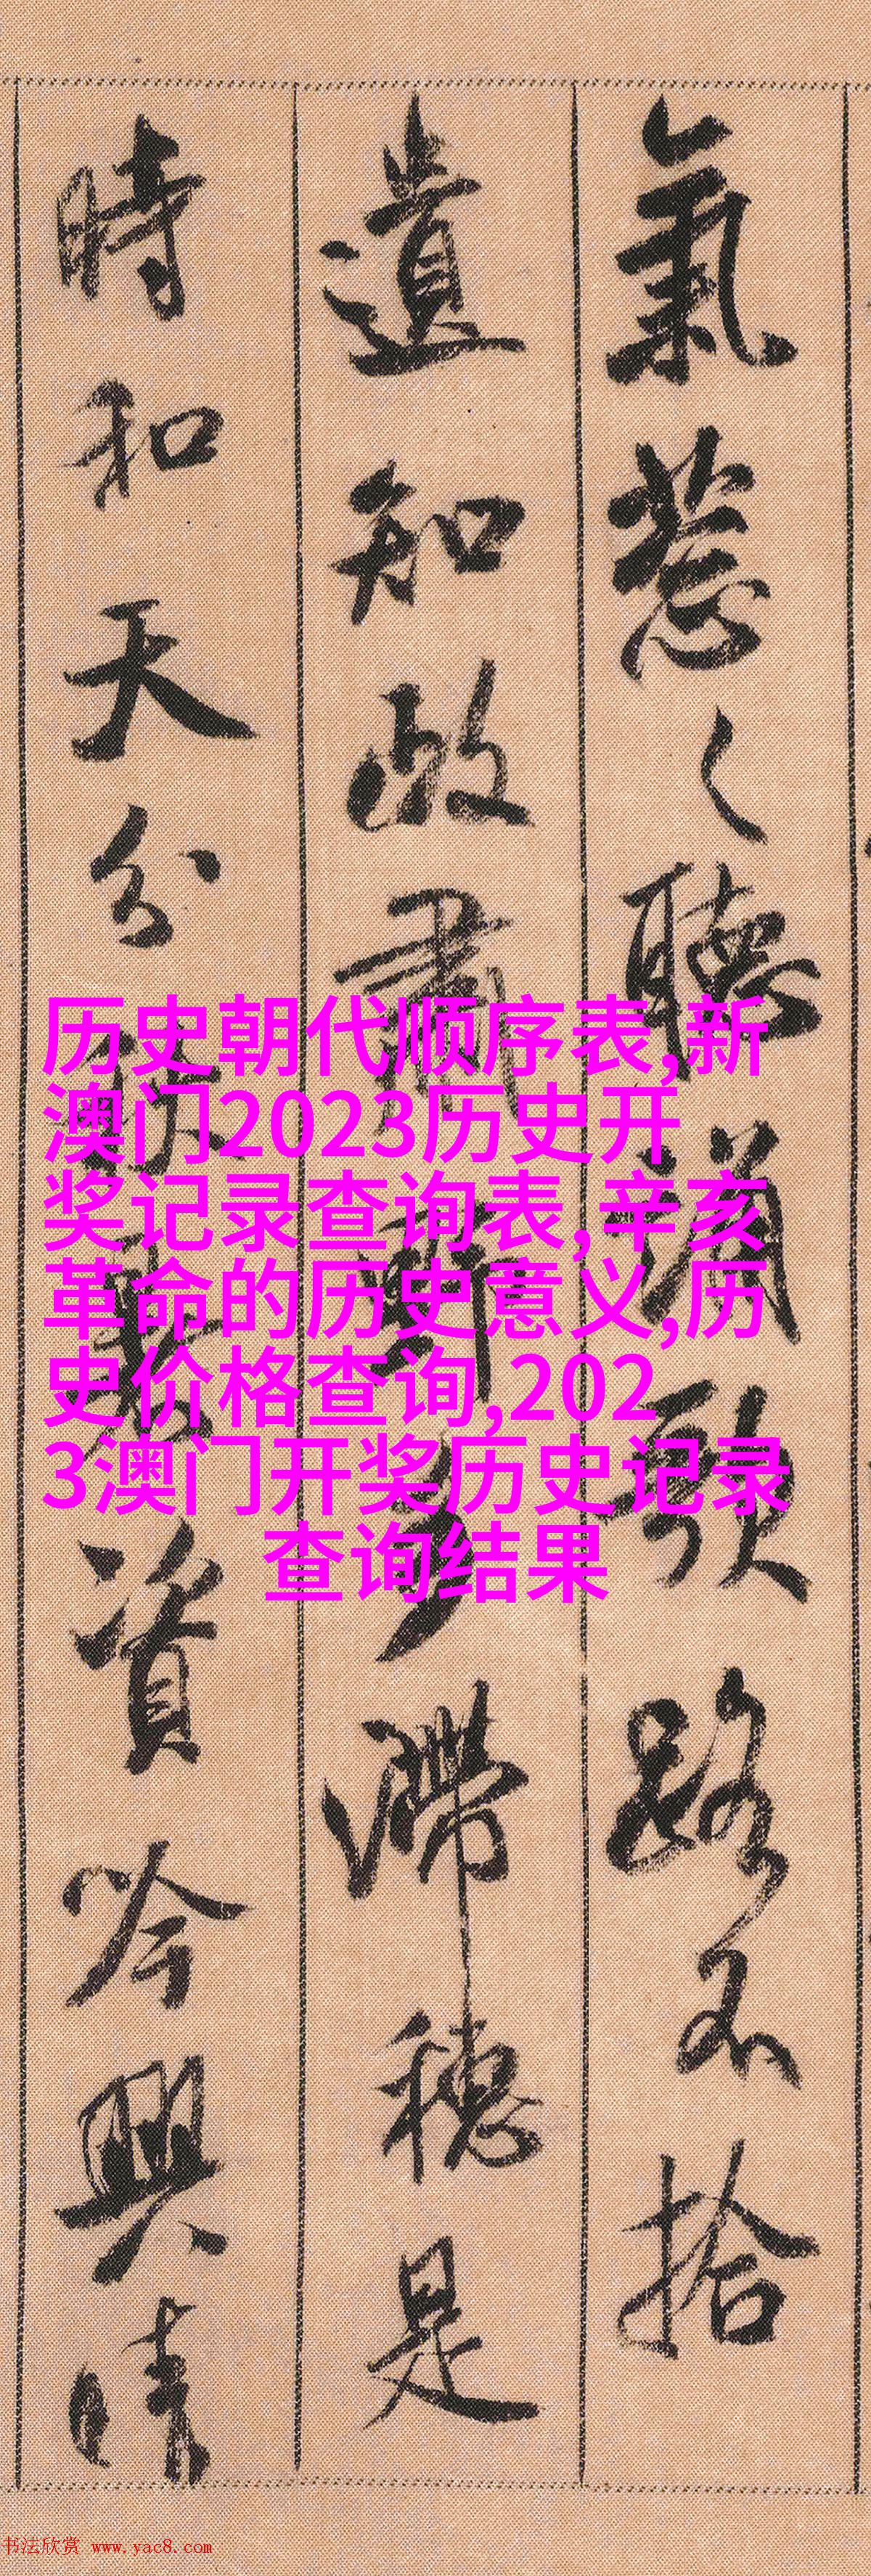 氣葱々聽滿歌路不拾
遺知政肅野多滯穗是
時和天分秋暑資吟興晴
历史朝代顺序表,新
澳门2023历史开
奖记录查询表,辛亥
革命的历史意义,历
史价格查询,202
3澳门开奖历史记录
查询结果
书法欣赏 www.yac8.com